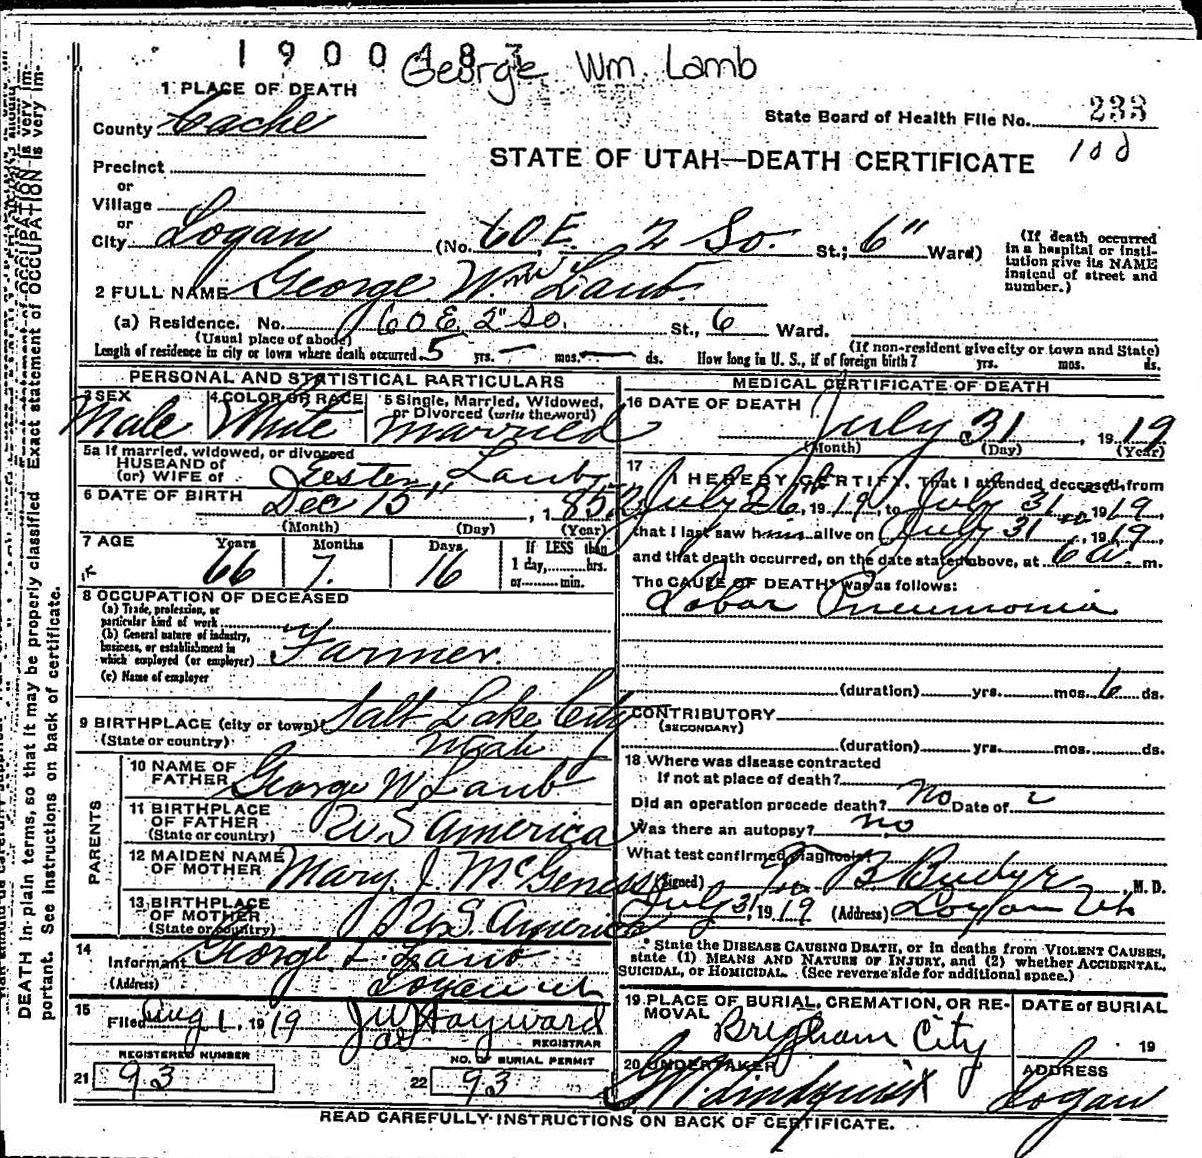 1900483
George Wm. Lamb
1 PLACE OF DEATH
County Cache
State Board of Health File No. 233
100
STATE OF UTAH—DEATH CERTIFICATE
Precinct
or
Village
or
City Logan (No. 60 E. 2 So. St.; 6" Ward)
(If death occurred in a hospital or insti-
tution give its NAME
instead of street and
number.)
2 FULL NAME George Wm Laub.
(a) Residence. No. 60 E. 2" So. St., 6 Ward.
(Usual place of abode)
(If non-resident give city or town and State)
Length of residence in city or town where death occurred 5 yrs. — mos. — ds. How long in U. S., if of foreign birth? yrs. mos. ds.
PERSONAL AND STATISTICAL PARTICULARS
3 SEX
Male
4 COLOR OR RACE
White
5 Single, Married, Widowed,
or Divorced (write the word)
Married
5a If married, widowed, or divorced
HUSBAND of
(or) WIFE of Laub
6 DATE OF BIRTH
Dec 15", 1852
(Month) (Day) (Year)
7 AGE Years Months Days
66 7. 16
If LESS than
1 day,......hrs.
or.........min.
8 OCCUPATION OF DECEASED
(a) Trade, profession, or
particular kind of work
(b) General nature of industry,
business, or establishment in
which employed (or employer) Farmer.
(c) Name of employer
9 BIRTHPLACE (city or town) Salt Lake City
(State or country) Utah
PARENTS
10 NAME OF
FATHER George W Laub
11 BIRTHPLACE
OF FATHER
(State or country) U S America
12 MAIDEN NAME
OF MOTHER Mary J McGeness
13 BIRTHPLACE
OF MOTHER
(State or country) U S America
14
Informant George L. Laub
(Address) Logan Ut
15
Filed Aug 1, 1919 J W Hayward
REGISTRAR
REGISTERED NUMBER
21 93
NO. OF BURIAL PERMIT
22 93
MEDICAL CERTIFICATE OF DEATH
16 DATE OF DEATH
July 31, 1919
(Month) (Day) (Year)
17
I HEREBY CERTIFY, That I attended deceased, from
July 26th, 1919, to July 31, 1919,
that I last saw him alive on July 31st, 1919,
and that death occurred, on the date stated above, at 6 a. m.
The CAUSE OF DEATH* was as follows:
Lobar Pneumonia
(duration) yrs. mos. 6 ds.
CONTRIBUTORY
(SECONDARY)
(duration) yrs. mos. ds.
18 Where was disease contracted
If not at place of death?
Did an operation precede death? No Date of
Was there an autopsy? no
What test confirmed diagnosis?
(Signed) B. Budge, M. D.
July 31, 1919 (Address) Logan Ut
* State the DISEASE CAUSING DEATH, or in deaths from VIOLENT CAUSES,
state (1) MEANS AND NATURE OF INJURY, and (2) whether ACCIDENTAL,
SUICIDAL, or HOMICIDAL. (See reverse side for additional space.)
19 PLACE OF BURIAL, CREMATION, OR RE-
MOVAL Brigham City
DATE of BURIAL
19
20 UNDERTAKER
Lindquist
ADDRESS
Logan
READ CAREFULLY INSTRUCTIONS ON BACK OF CERTIFICATE.
DEATH in plain terms, so that it may be properly classified. Exact statement of OCCUPATION is very im-
portant. See instructions on back of certificate.